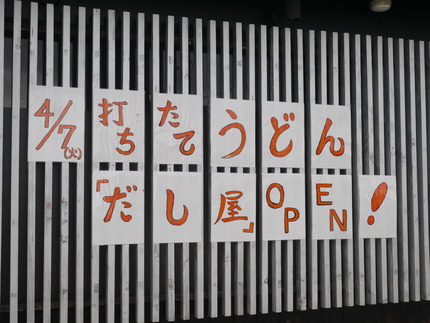 4/7(火)打ちたてうどん
「だし屋」OPEN!